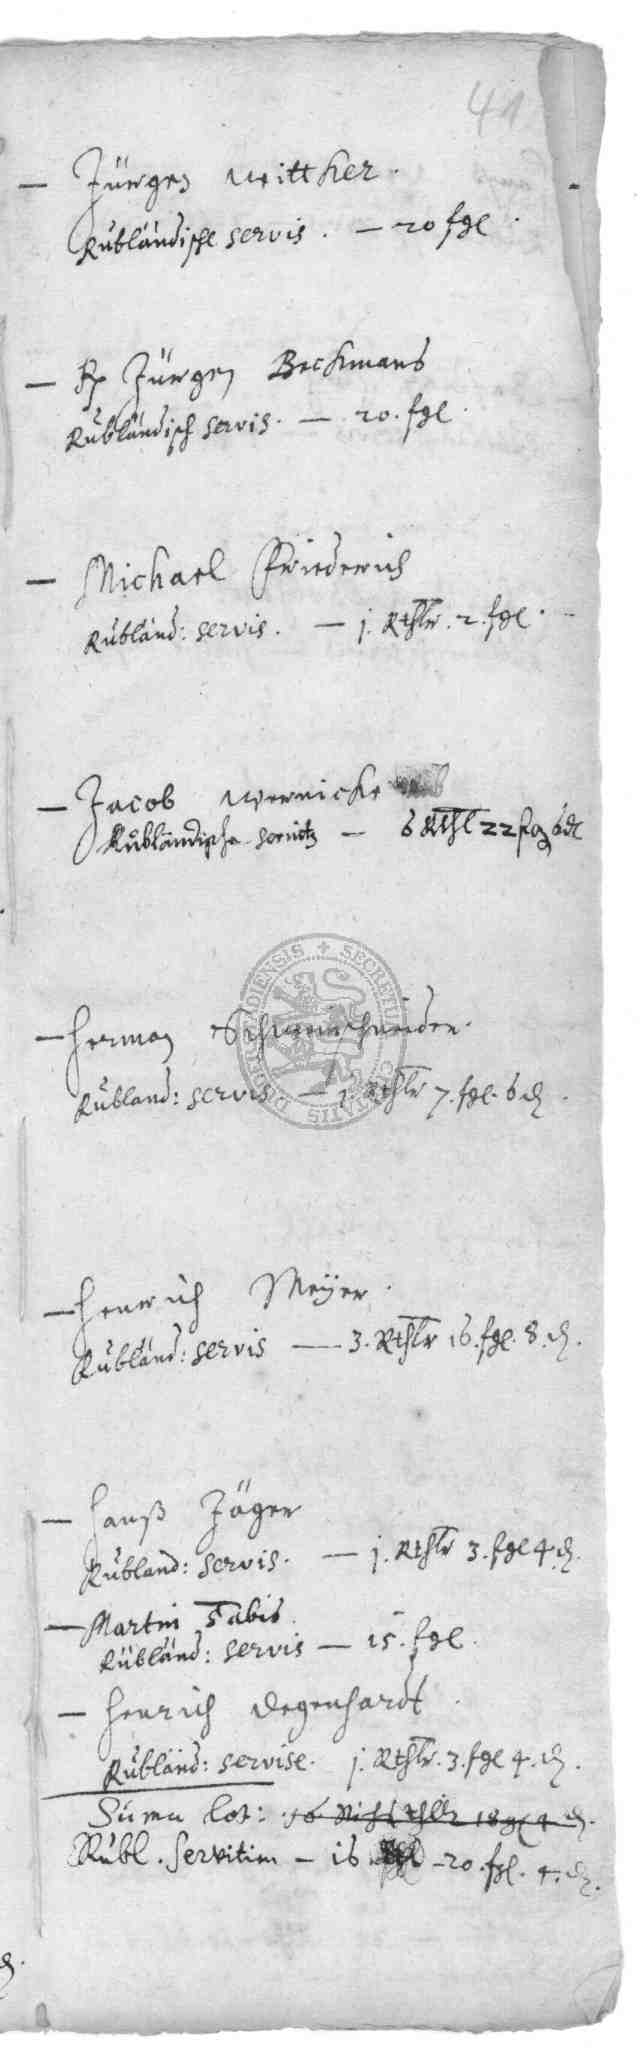 41
— Jürgen Wittker.
Rübländische servis. — 20 fgl.
— Jürgen Beckmans
Rübländisch servis. — 20. fgl.
— Michael Friederich
Rübländ: servis. — j. Rthlr. 2. fgl.
— Jacob Wernicke
Rübländische servitz — 6 Rthl 22 fgl 6 d
— Herman Schweinschneider.
Rübland: servis — j. Rthlr 7. fgl. 6 d.
— Henrich Meÿer.
Rübländ: servis — 3. Rthlr 16. fgl. 8. d.
— Hanß Jäger
Rübland: servis. — j. Rthlr 3. fgl 4 d.
— Martin Tabis.
Rübländ: servis — 15. fgl.
— Henrich Degenhardt.
Rübländ: servise. j. Rthlr. 3. fgl 4. d.
Suma lat: 18 gl 4 d.
Rübl. Servitien — 16 — 20. fgl. 4. d.
SECRETU CIVITATIS